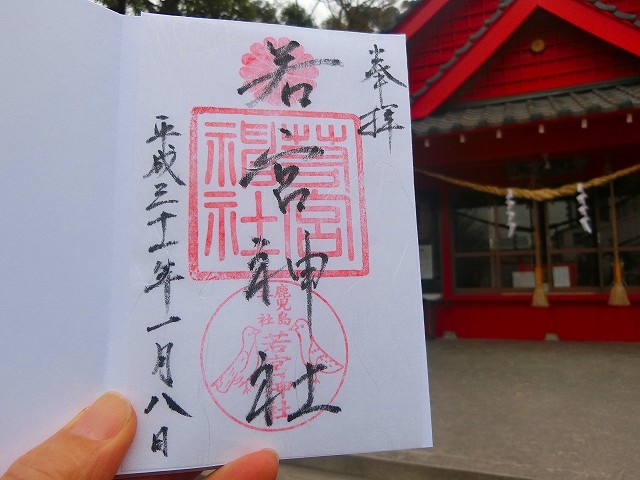 奉拝
若宮神社
平成三十一年一月八日
若宮
神社
鹿児島
社
若宮神社